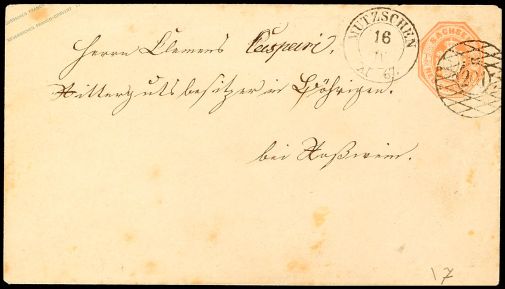 MUTZSCHEN
16
67
SACHSEN
Herrn Clemens Caspari,
Rittergutsbesitzer in Böhrigen.
bei Roßwein.
17